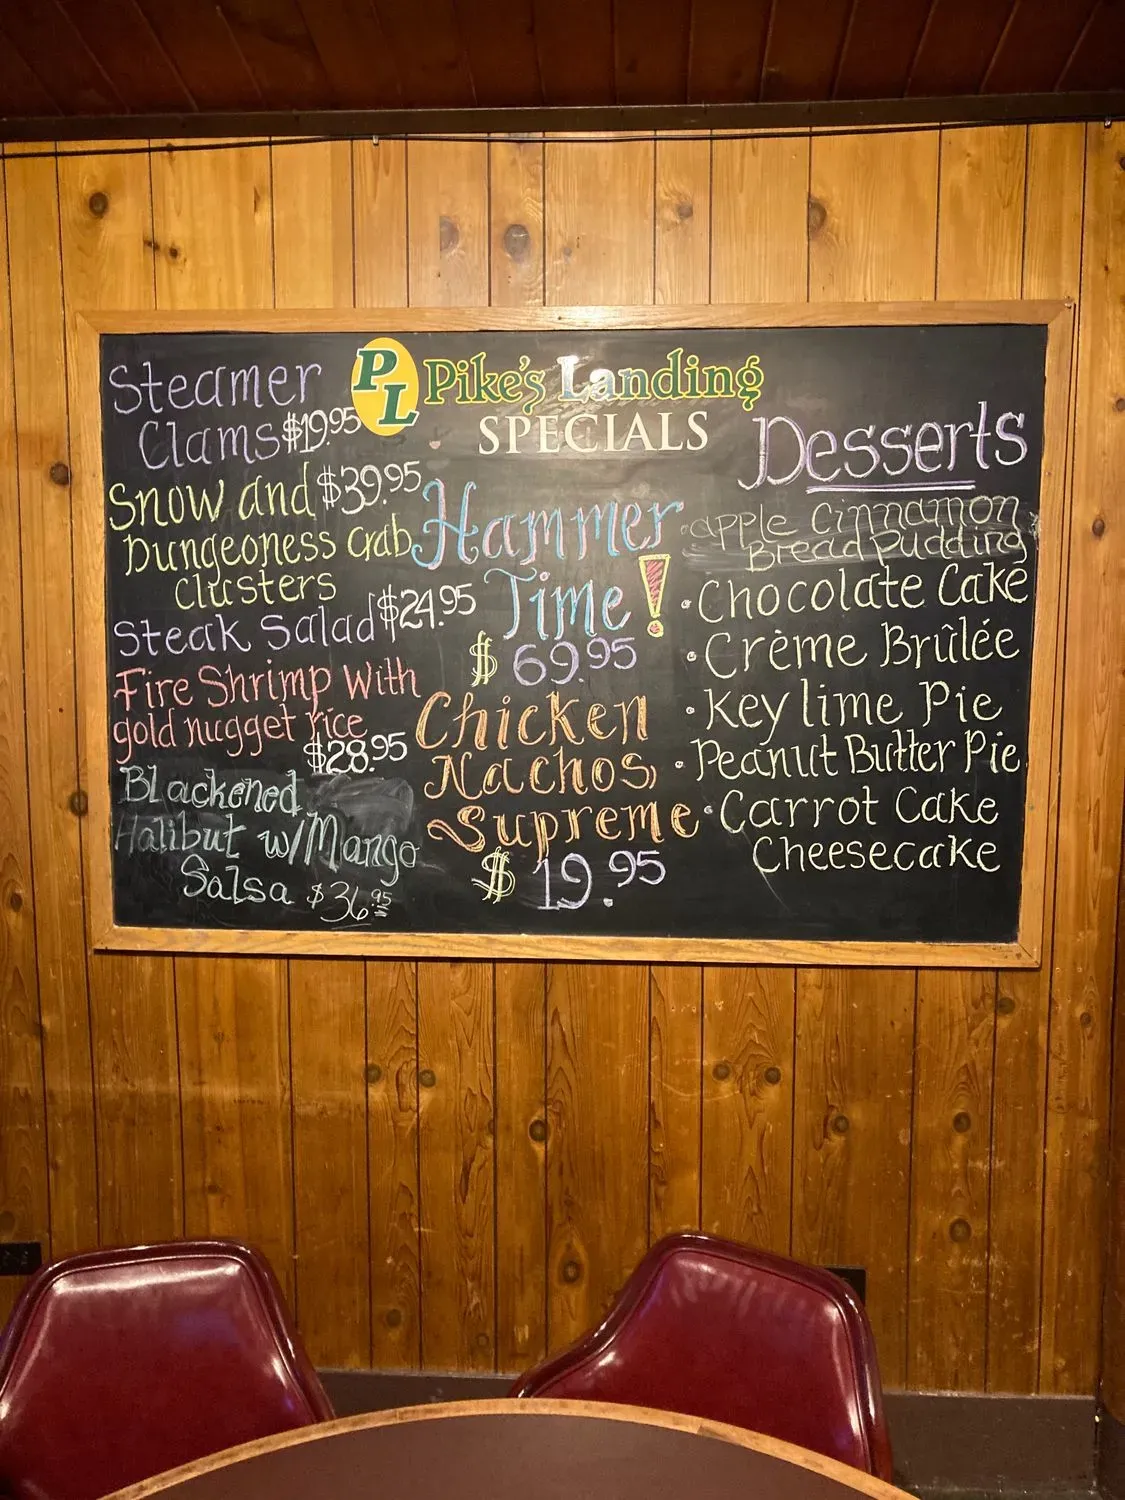 PL Pike's Landing
SPECIALS
Steamer
Clams $19.95
Snow and $39.95
Dungeoness Crab
Clusters
Steak Salad $24.95
Fire Shrimp With
gold nugget rice
$28.95
Blackened
Halibut w/Mango
Salsa $36.95
Hammer
Time!
$69.95
Chicken
Nachos
Supreme
$19.95
Desserts
•apple cinnamon
Bread Pudding
•Chocolate Cake
•Crème Brûlée
•Key lime Pie
•Peanut Butter Pie
•Carrot Cake
Cheesecake